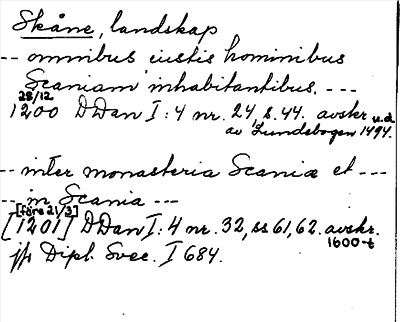 Skåne, landskap
-- omnibus iustis hominibus
Scaniam inhabitantibus. ---
28/12
1200 DDan I:4 nr. 24, s. 44. avskr u.d.
av Lundebogen 1494.
-- inter monasteria Scaniæ et ---
-- in Scania ---
[före 21/3]
[1201] DDan I:4 nr. 32, ss 61, 62. avskr.
1600-t
jfr Dipl. Svec. I 684.